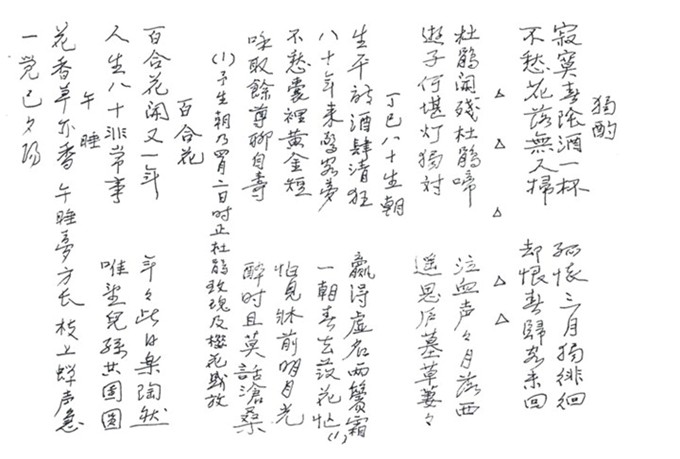 独酌
寂寞春陰酒一杯 孤懷三月独徘徊
不愁花落無人掃 却恨春歸客未回
△ △ △ △ △
杜鵑開残杜鵑啼 泣血声々月落西
遊子何堪灯独対 遥思后墓草萋々
丁巳八十生朝
生平詩酒肆清狂 贏得虚名两鬢霜
八十年来驚客夢 一朝春去落花忙(1)
不愁囊裡黄金短 怕見牀前明月光
取餘尊聊自壽 醉时且莫話滄桑
(1)予生朝乃四月二日时正杜鵑玫瑰及櫻花盛放
百合花
百合花開又一年 年々此日楽陶然
人生八十非常事 唯望兒孫共团圆
午睡
花香草亦香 午睡夢方长 枝上蝉声急
一觉已夕阳